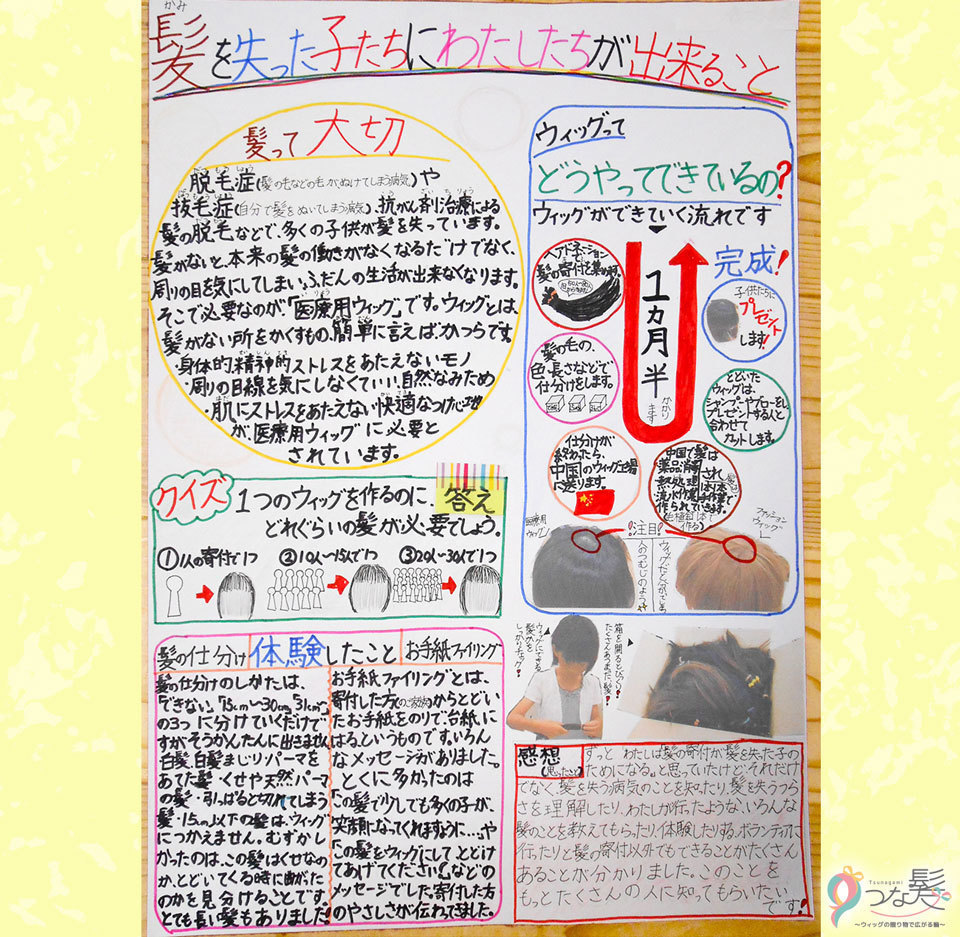 かみ
髪を失った子たちにわたしたちが出来ること
髪って大切
だつもうしょう
脱毛症(髪の毛などの毛がぬけてしまう病気)や
抜毛症(自分で髪をぬいてしまう病気)、抗がん剤治療による
髪の脱毛などで、多くの子供が髪を失っています。
髪がないと、本来の髪の働きがなくなるだけでなく、
周りの目を気にしてしまい、ふだんの生活が出来なくなります。
そこで必要なのが、「医療用ウィッグ」です。ウィッグとは、
髪がない所をかくすもの、簡単に言えばかつらです。
・身体的精神的ストレスをあたえないモノ
・周りの目線を気にしなくていい自然なみため
・肌にストレスをあたえない快適なつけ心地
が、医療用ウィッグに必要と
されています。
ウィッグって
どうやってできているの?
ウィッグができていく流れです
1カ月半
かかります
ヘアドネーションで
髪の寄付を集めます。
髪の毛の、
色・長さなどで
仕分けをします。
仕分けが
終わったら、
中国のウィッグ工場
に送ります。
中国で髪は
薬品消毒され
熱処理
流水作業で
作られていきます。
とどいた
ウィッグは、
シャンプーやブローをし、
プレゼントする人と
合わせて
カットします。
完成!
子供たちに
プレゼント
します!
医療用
ウィッグ
注目!
ファッション
ウィッグ
クイズ
1つのウィッグを作るのに、
どれぐらいの髪が必要でしょう。
答え
①1人の寄付で1つ
②10人〜15人で1つ
③20人〜30人で1つ
体験したこと
髪の仕分け
髪の仕分のしかたは、
「できない」「15cm〜30cm」「31cm〜」
の3つに分けていくだけで
すが、そうかんたんに出きません。
白髪、白髪まじり、パーマを
あてた髪・くせや天然パーマ
の髪・引っぱると切れてしまう
髪・15cm以下の髪は、ウィッグ
につかえません。むずかし
かったのは、この髪はくせなの
か、とどいてくる時に曲がった
のかを見分けることです。
とても長い髪もありました!
お手紙ファイリング
お手紙ファイリングとは、
寄付した方(のご家族)からとどい
たお手紙をのりで、台紙に
はる。というものです。いろん
なメッセージがありました。
とくに多かったのは
「この髪で少しでも多くの子が、
笑顔になってくれますように…。」や
「この髪をウィッグにして、とどけ
てあげてください。」などの
メッセージでした。寄付した方
のやさしさが伝わってきました。
ウィッグにできる
髪かを
しっかりチェック!
箱を開るとびっくり!
たくさんあつまった髪!
感想
(思ったこと)
ずっと わたしは髪の寄付が髪を失った子の
ためになる。と思っていたけど、それだけ
でなく、髪を失う病気のことを知ったり、髪を失うつら
さを理解したり、わたしが行ったような、いろんな
髪のことを教えてもらったり、体験したりする、ボランティアに
行ったりと髪の寄付以外でもできることがたくさん
あることが分かりました。このことを
もっとたくさんの人に知ってもらいたい
です!
Tsunagami
つな髪
〜ウィッグの贈り物で広がる輪〜